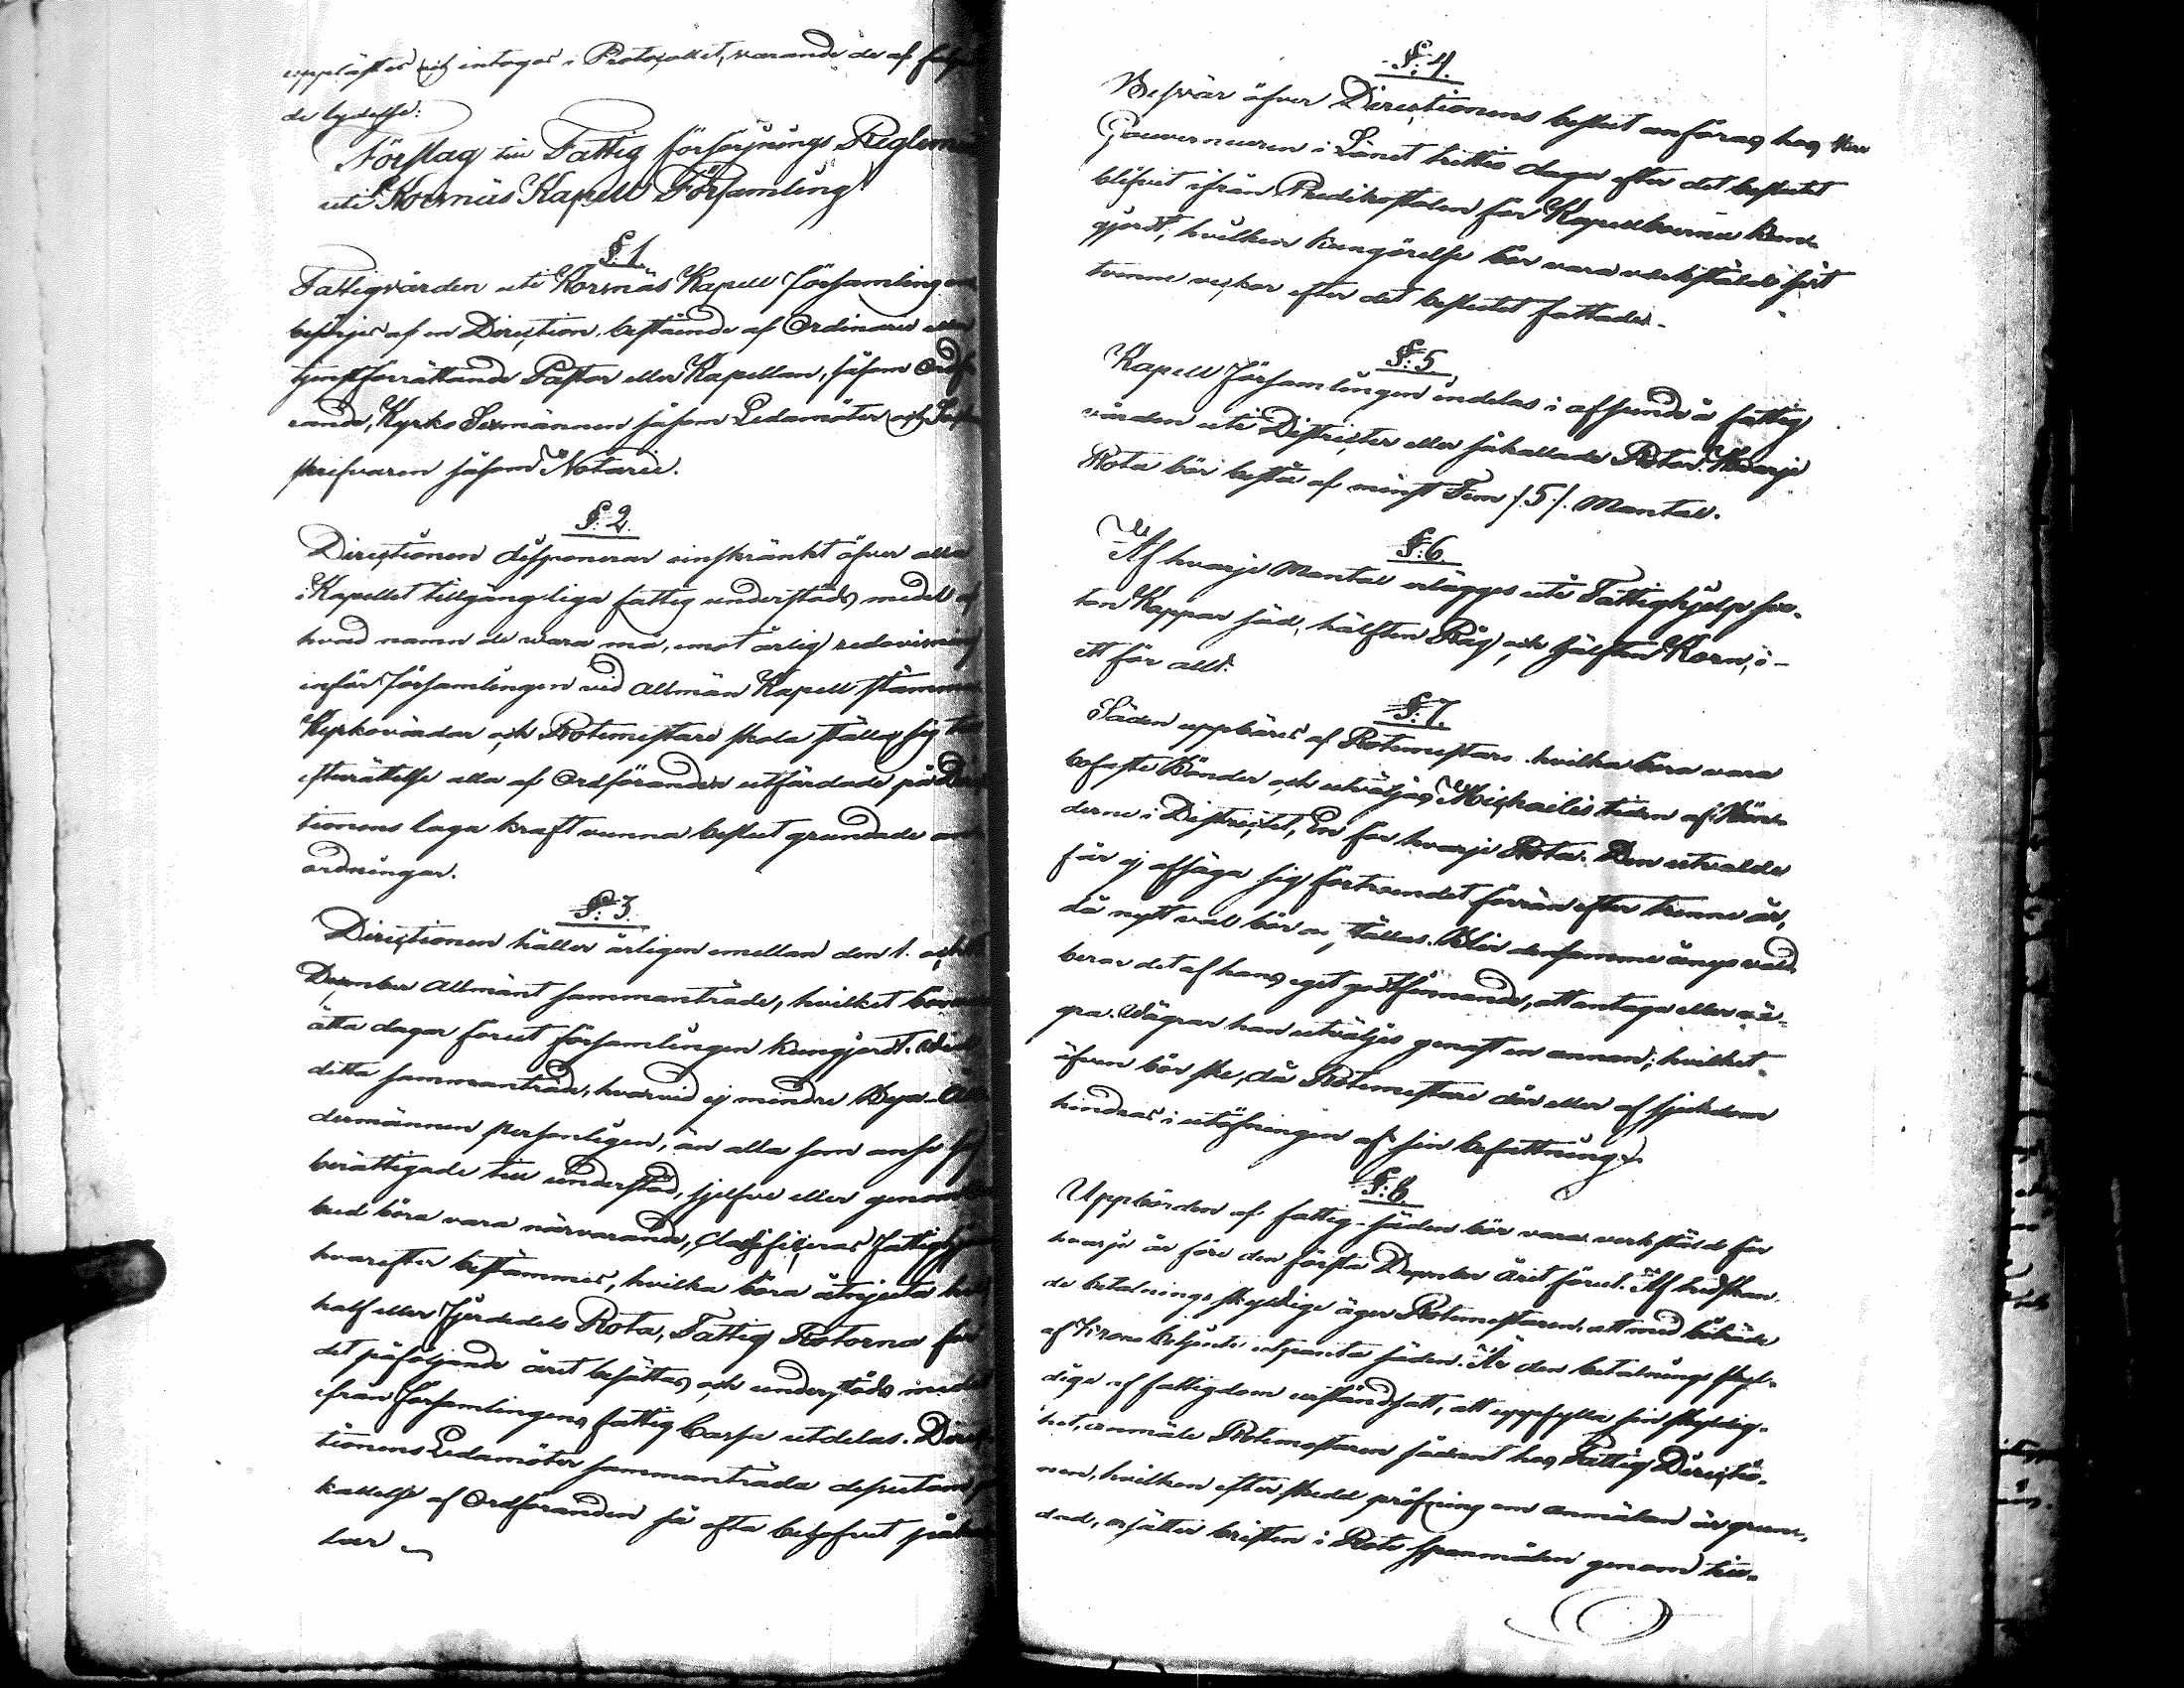 upplästes och intogos i Protocollet, varande de af följan
de lydelse:
Förslag till Fattig försörjnings Reglemen
uti Korsnäs Kapell Församling
§. 1.
Fattigvården uti Korsnäs Kapell församling
besörjes af en Direction, bestående af Ordinarie eller
tjenstförrättande Pastor eller Kapellan, såsom Ordf
rande, Kyrko Sexmännen såsom Ledamöter och
skrifvaren såsom Notarie.
§. 2.
Directionen disponerar oinskränkt öfver alla
i Kapellet tillgängliga fattig understöds medel af
hvad namn de vara må, emot årlig redovisning
inför församlingen vid allmän Kapell stämma
Kyrkovärdar och Rotemästare skola ställa sig till
efterrättelse alla af Ordföranden utfärdade på Direc
tionens laga kraft vunna beslut grundade an
ordningar.
§. 3.
Directionen håller årligen emellan den 1. och
December allmänt sammanträde, hvilket bör
åtta dagar förut församlingen kungjordt. Vid
detta sammanträde, hvarvid ej mindre Bya-Ål
dermännen personligen, än alla som anse sig
berättigade till understöd, sjelfve eller genom
bud böra vara närvarande, Classificeras fattighj
hvarefter bestämmes, hvilka böra åtnjuta hel
half eller fjerdedels Rota, Fattig Rotorna för
det påföljande året besättas, och understöds medel
ifrån församlingens fattig Cassa utdelas. Direc
tionens Ledamöter sammanträda dessutom
kallelse af Ordföranden så ofta behofvet påkal
lar
§. 4.
Besvär öfver Directionens beslut anföras hos Herr
Gouverneuren i Länet trettio dagar efter det beslutet
blifvit ifrån Predikostolen för Kapellboerna kund
gjordt, hvilken kungörelse bör vara verkstäld sist
tvenne veckor efter det beslutet fattades.
§. 5.
Kapell församlingen indelas i afseende å fattig
vården uti Districter eller såkallade Rotar. Hvarje
Rota bör bestå af minst Fem /:5:/. Mantal.
§. 6.
Af hvarje Mantal erlägges uti Fattighjelp
ton Kappar säd, hälften Råg och hälften Korn, i
ett för allt.
§. 7.
Säden uppbäres af Rotemästare hvilka böra vara
bofaste Bönder och utväljas Michaelis tiden af Bön
derne i Districtet, En för hvarje Rota. Den utvalde
får ej afsäga sig förtroendet förrän efter trenne år,
då nytt val bör anställas. Blir densamme ånyo vald,
beror det af hans eget godtfinnande, att antaga eller vä-
gra. Vägrar han utväljes genast en annan; hvilket
äfven bör ske, då Rotemästare dör eller af sjukdom
hindras i utöfningen af sin befattning.
§. 8.
Uppbörden af fattig-säden bör vara verkstäld för
hvarje år före den första December året förut. Af tredskan
de betalnings skyldige äger Rotemästaren, att med biträde
af Krono Betjente utjemta säden. Är den betalnings skyl-
dige af fattigdom urståndsatt, att uppfylla sin skyldig-
het, anmäle Rotemästaren sådant hos Fattig Directio-
nen, hvilken efter skedd pröfning om anmälan är grun-
dad, ersätter bristen i Rote spanmålen genom